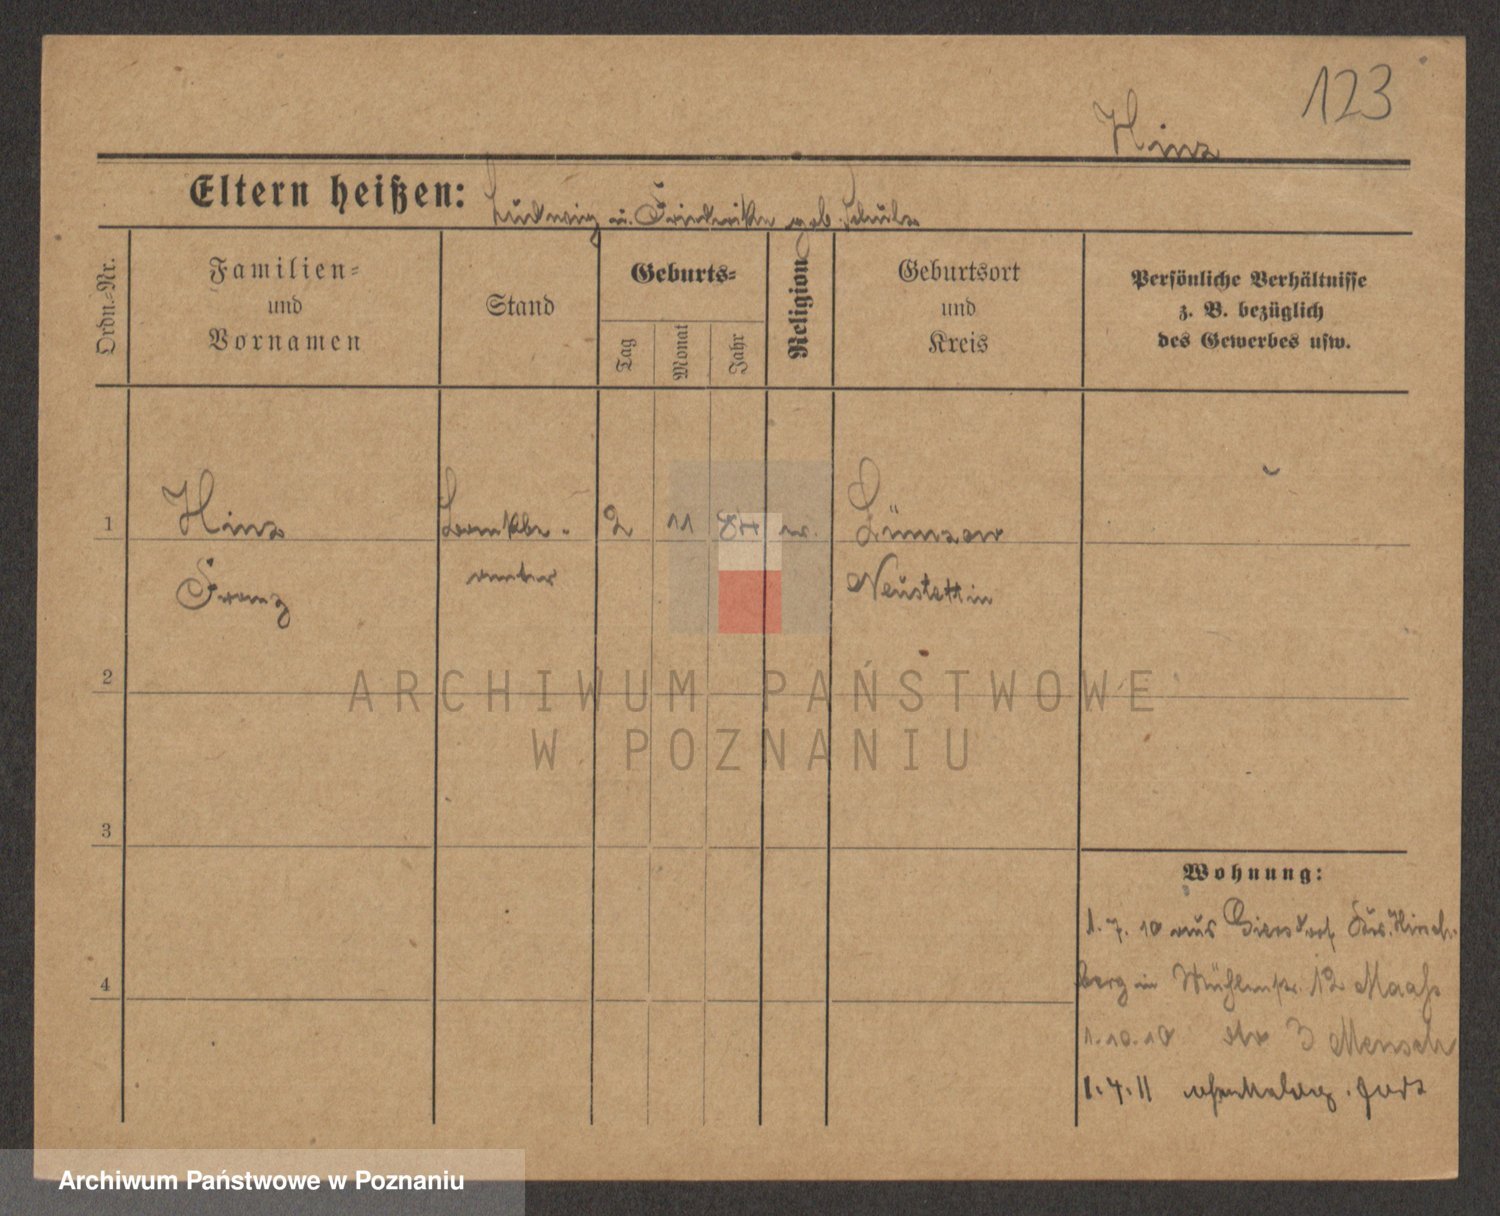 123
Hinz
Eltern heißen: Ludwig u. Friederike geb. Schulz
Ordn.-Nr.
Familien-
und
Vornamen
Stand
Geburts-
Tag
Monat
Jahr
Religion
Geburtsort
und
Kreis
Persönliche Verhältnisse
z. B. bezüglich
des Gewerbes usw.
1 Hinz 2 11 84 ev. Lümzow
Franz Neustettin
2
ARCHIWUM PAŃSTWOWE
W POZNANIU
3
Wohnung:
1. 7. 10 aus Giersdorf Krs. Hirsch-
4
berg in Mühlenstr. 12 Maaß
1. 10. 10 dto 3 Mensch
1. 4. 11
Archiwum Państwowe w Poznaniu